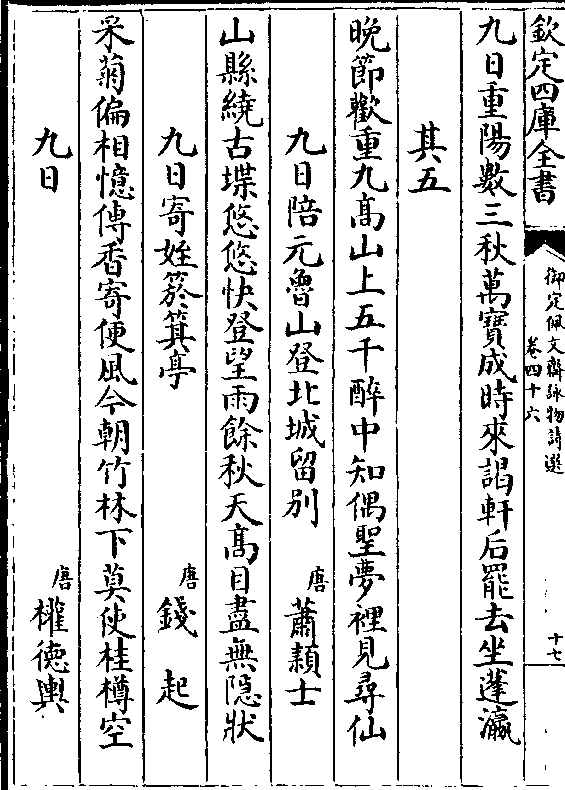 欽定四庫全書
御定佩文齋詠物詩選
卷四十六
十七
九日重陽數三秋萬寶成時來謁軒后罷去坐蓬瀛
其五
晚節歡重九高山上五千醉中知偶聖夢裡見尋仙
九日陪元魯山登北城留別 唐 蕭穎士
山縣繞古堞悠悠快登望雨餘秋天高目盡無隱狀
九日寄姪箊箕亭 唐 錢起
采菊偏相憶傳香寄便風今朝竹林下莫使桂樽空
九日 唐 權德輿